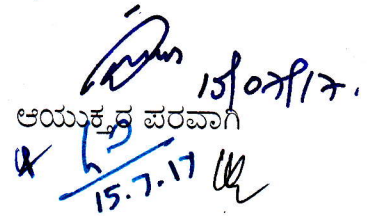 15/07/17.
ಆಯುಕ್ತರ ಪರವಾಗಿ
15.7.17